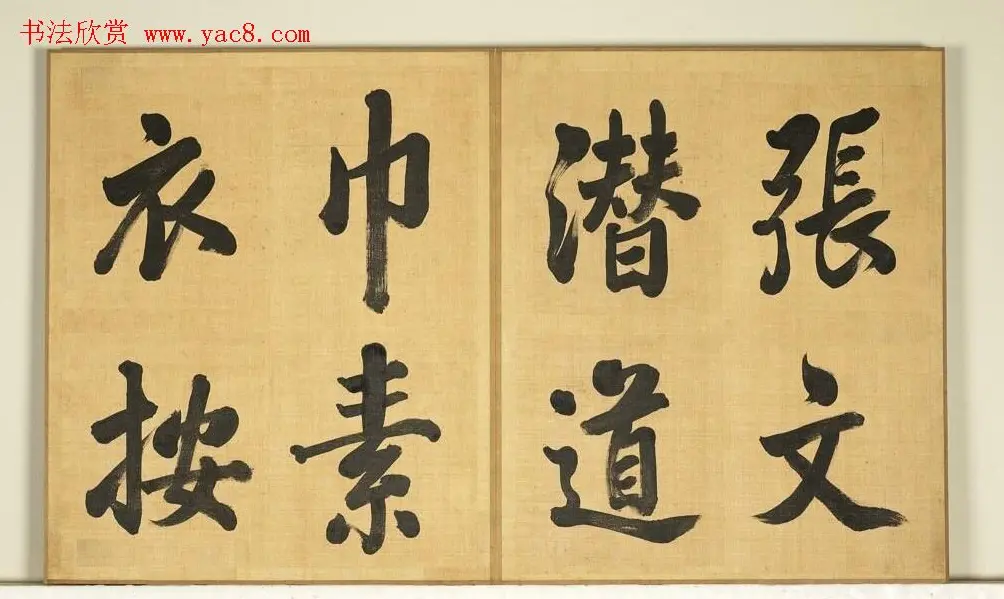 书法欣赏 www.yac8.com
張文
潜道
巾素
衣按